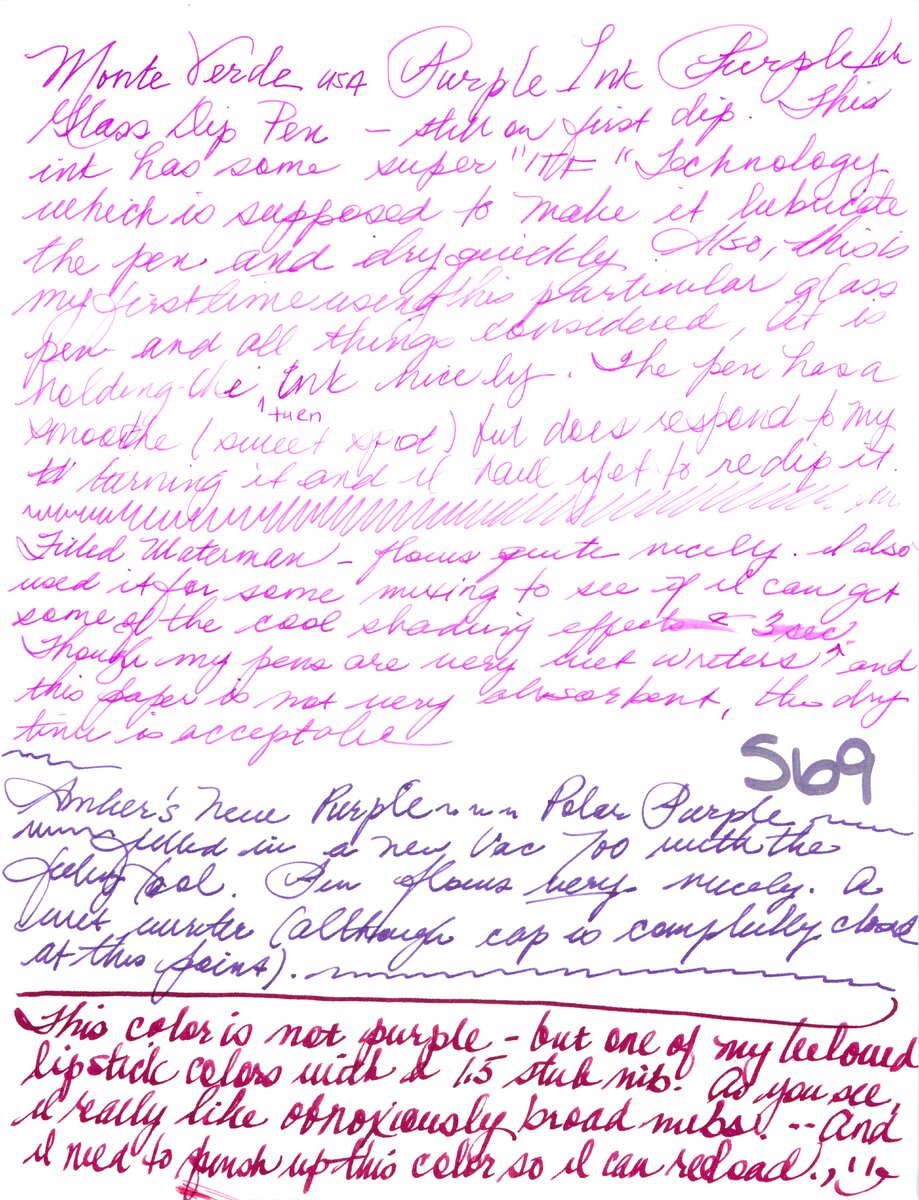 Monte Verde USA Purple Ink Purple Ink
Glass Dip Pen - still on first dip. This
ink has some super "ITF" Technology
which is supposed to make it lubricate
the pen and dry quickly. Also, this is
my first time using this particular glass
pen and all things considered, it is
holding the ink nicely. The pen has a
then
smoothe (sweet spot) but does respond to my
turning it and I have yet to redip it.
Filled Waterman - flows quite nicely. I also
used it for some mixing to see if I can get
some of the cool shading effects 3 sec.
Though my pens are very wet writers ^ and
this paper is not very absorbent, the dry
time is acceptable
S69
Amber's new Purple ~~~ Polar Purple
filled in a new Vac 700 with the
tool. Pen flows very nicely. A
wet writer (although cap is complfully closed
at this point).
This color is not purple - but one of my beloved
lipstick colors with a 1.5 stub nib! As you see,
I really like obnoxiously broad nibs! -- And
I need to push up this color so I can reload.